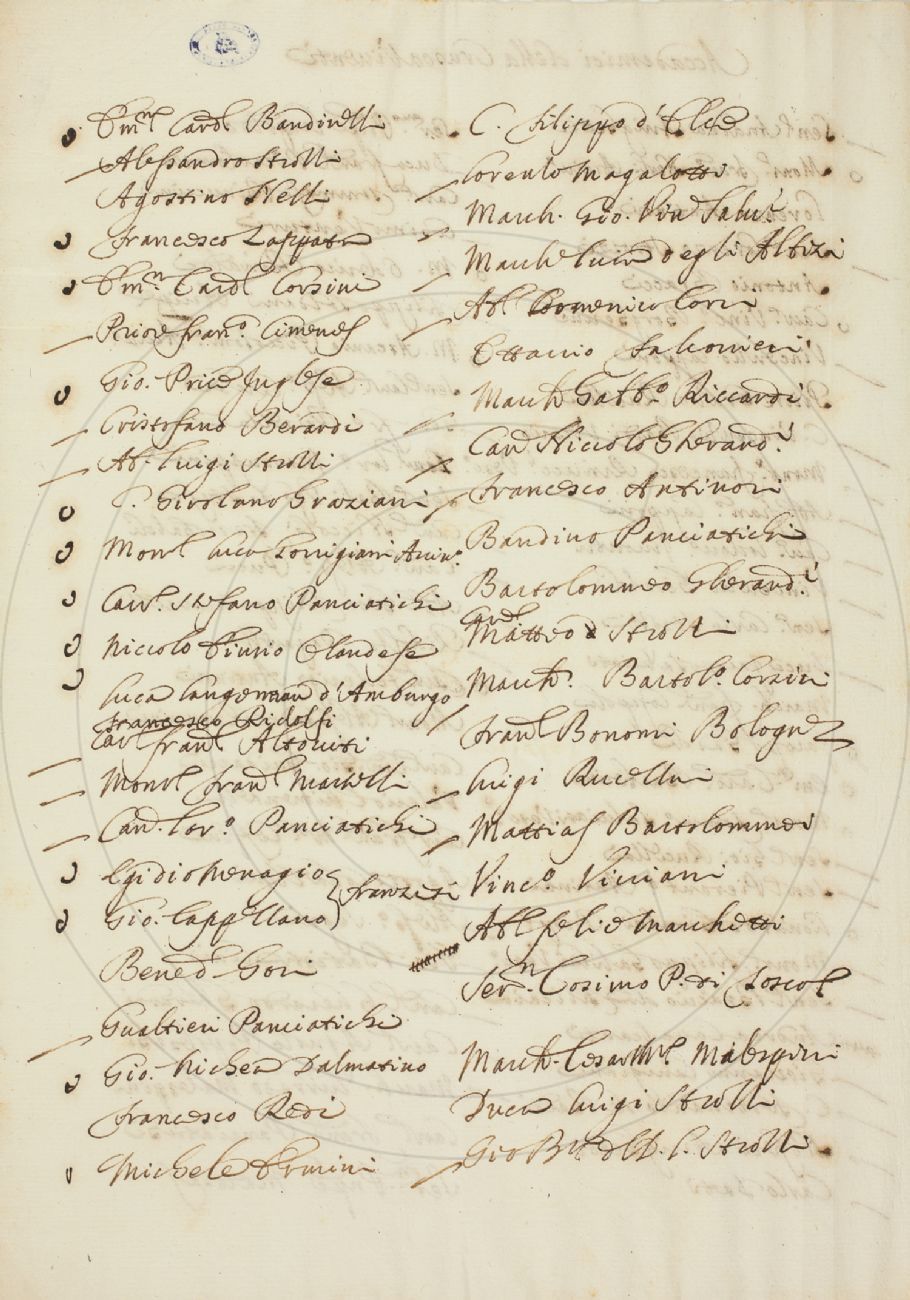 Em.mo Card.l Bandinelli
Alessandro Strozzi
Agostino Nelli
Francesco Zappata
Em.mo Card.l Corsini
Priore Fran.o Cimenes
Gio. Price Inglese
Cristofano Berardi
Ab. Luigi Strozzi
C. Girolamo Graziani
Mons.l Luca Torrigiani Arciv.o
Cav.l Stefano Panciatichi
Niccolò Einsio Olandese
Luca Langerman d'Amburgo
Francesco Ridolfi
Cav.l Fran.l Altoviti
Mons.l Fran.l Martelli
Can. Lor.o Panciatichi
Egidio Menagio
Gio. Cappellano } franzesi
Bened. Gori
Gualtieri Panciatichi
Gio. Michea Dalmatino
Francesco Redi
Michele Ermini
C. Filippo d'Elce
Lorenzo Magalotti
March. Gio. Vin. Salv.i
March. Luca degli Albizi
Ab. Domenico Corsi
Ottavio Falconieri
March. Gabb.o Riccardi
Cav. Niccolò Gherard.i
Francesco Antinori
Bandino Panciatichi
Bartolommeo Gherard.i
Matteo Strozzi
March. Bartol.o Corsini
Fran.l Bonomi Bologn.
Luigi Rucellai
Mattias Bartolommei
Vinc.o Viviani
Ab. Felice Marchetti
Ser.mo Cosimo P. di Toscol
March. Malespini
Duca Luigi Strozzi
Strozzi